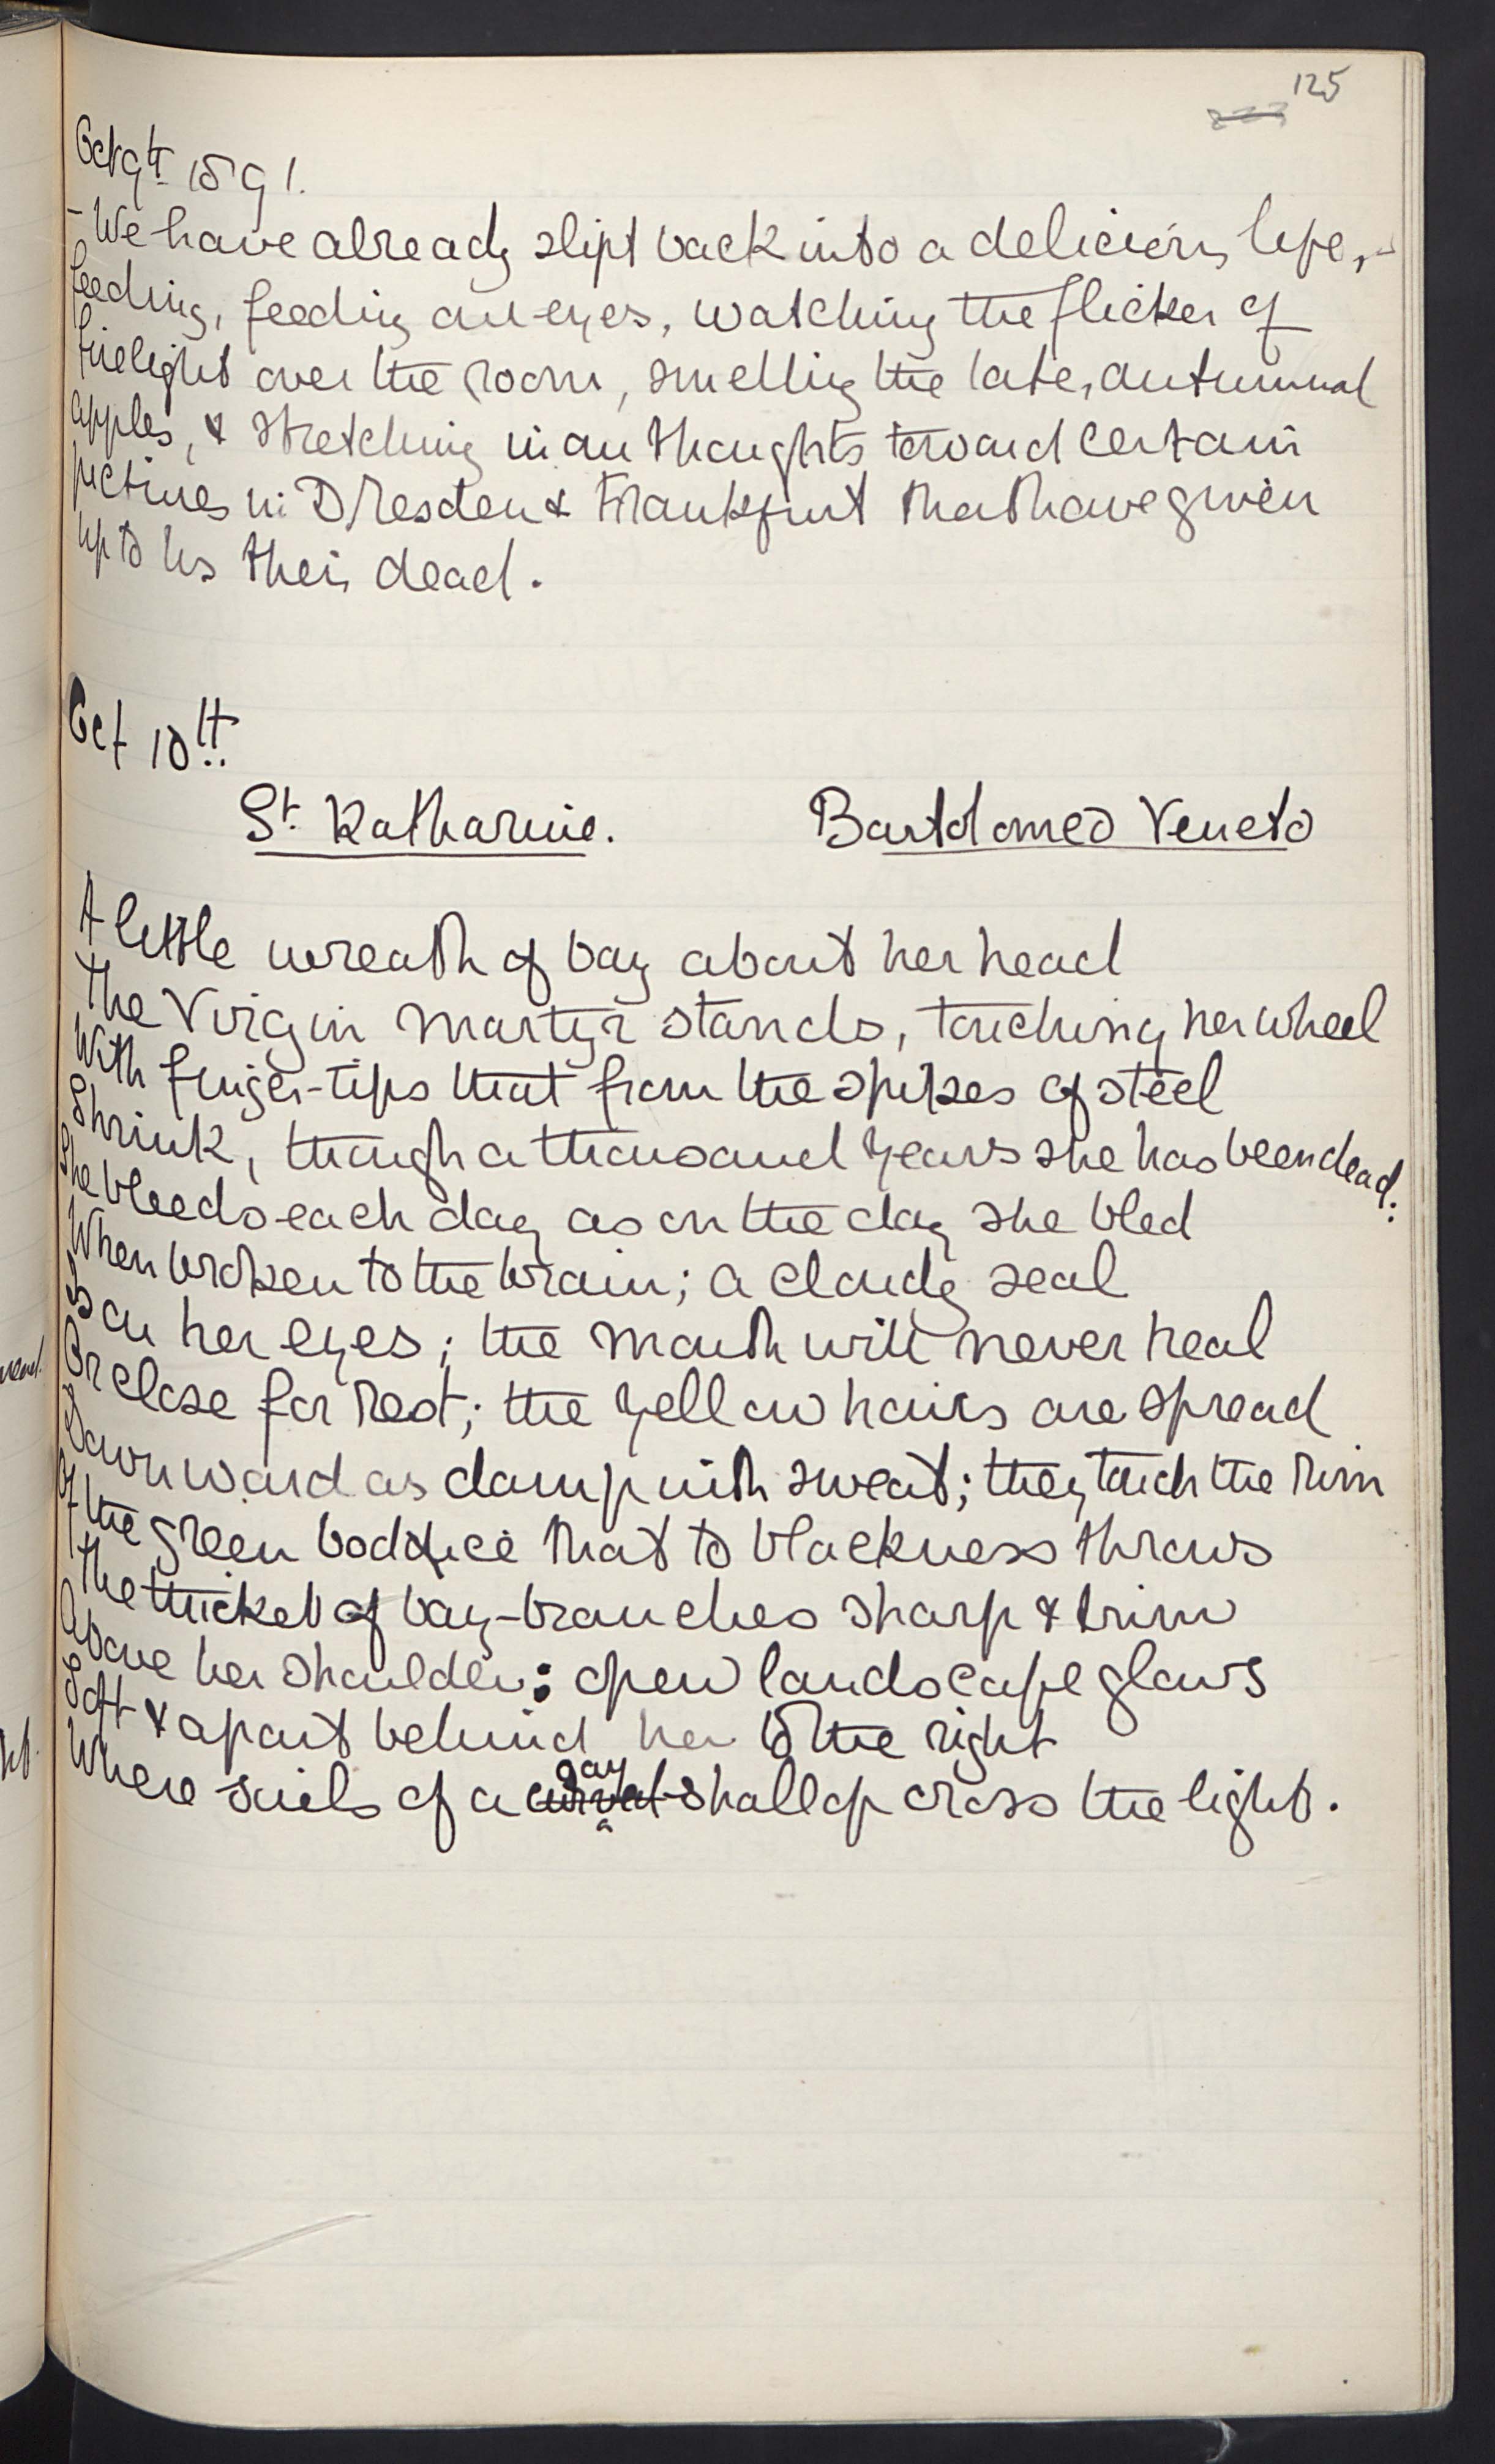 125
Oct 9th 1891.
- We have already slipt back into a delicious life, -
feeding, feeding our eyes, watching the flicker of
firelight over the room, smelling the late, autumnal
apples, & stretching in our thoughts toward certain
pictures in Dresden & Frankfurt that have given
up to us their dead.
Oct 10th.
St. Katharine. Bartolomeo Veneto
A little wreath of bay about her head
The Virgin martyr stands, touching her wheel
With finger-tips that from the spikes of steel
Shrink, though a thousand years she has been dead:
She bleeds each day as on the day she bled
When broken to the brain; a cloudy seal
Is on her eyes; the mouth will never heal
Or close for rest; the yellow hairs are spread
Downward as damp with sweat; they touch the rim
Of the green boddice that to blackness throws
The thicket of bay-branches sharp & trim
Above her shoulder: open landscape glows
Soft & apart behind her to the right
gay
Where sails of a curved shallop cross the light.